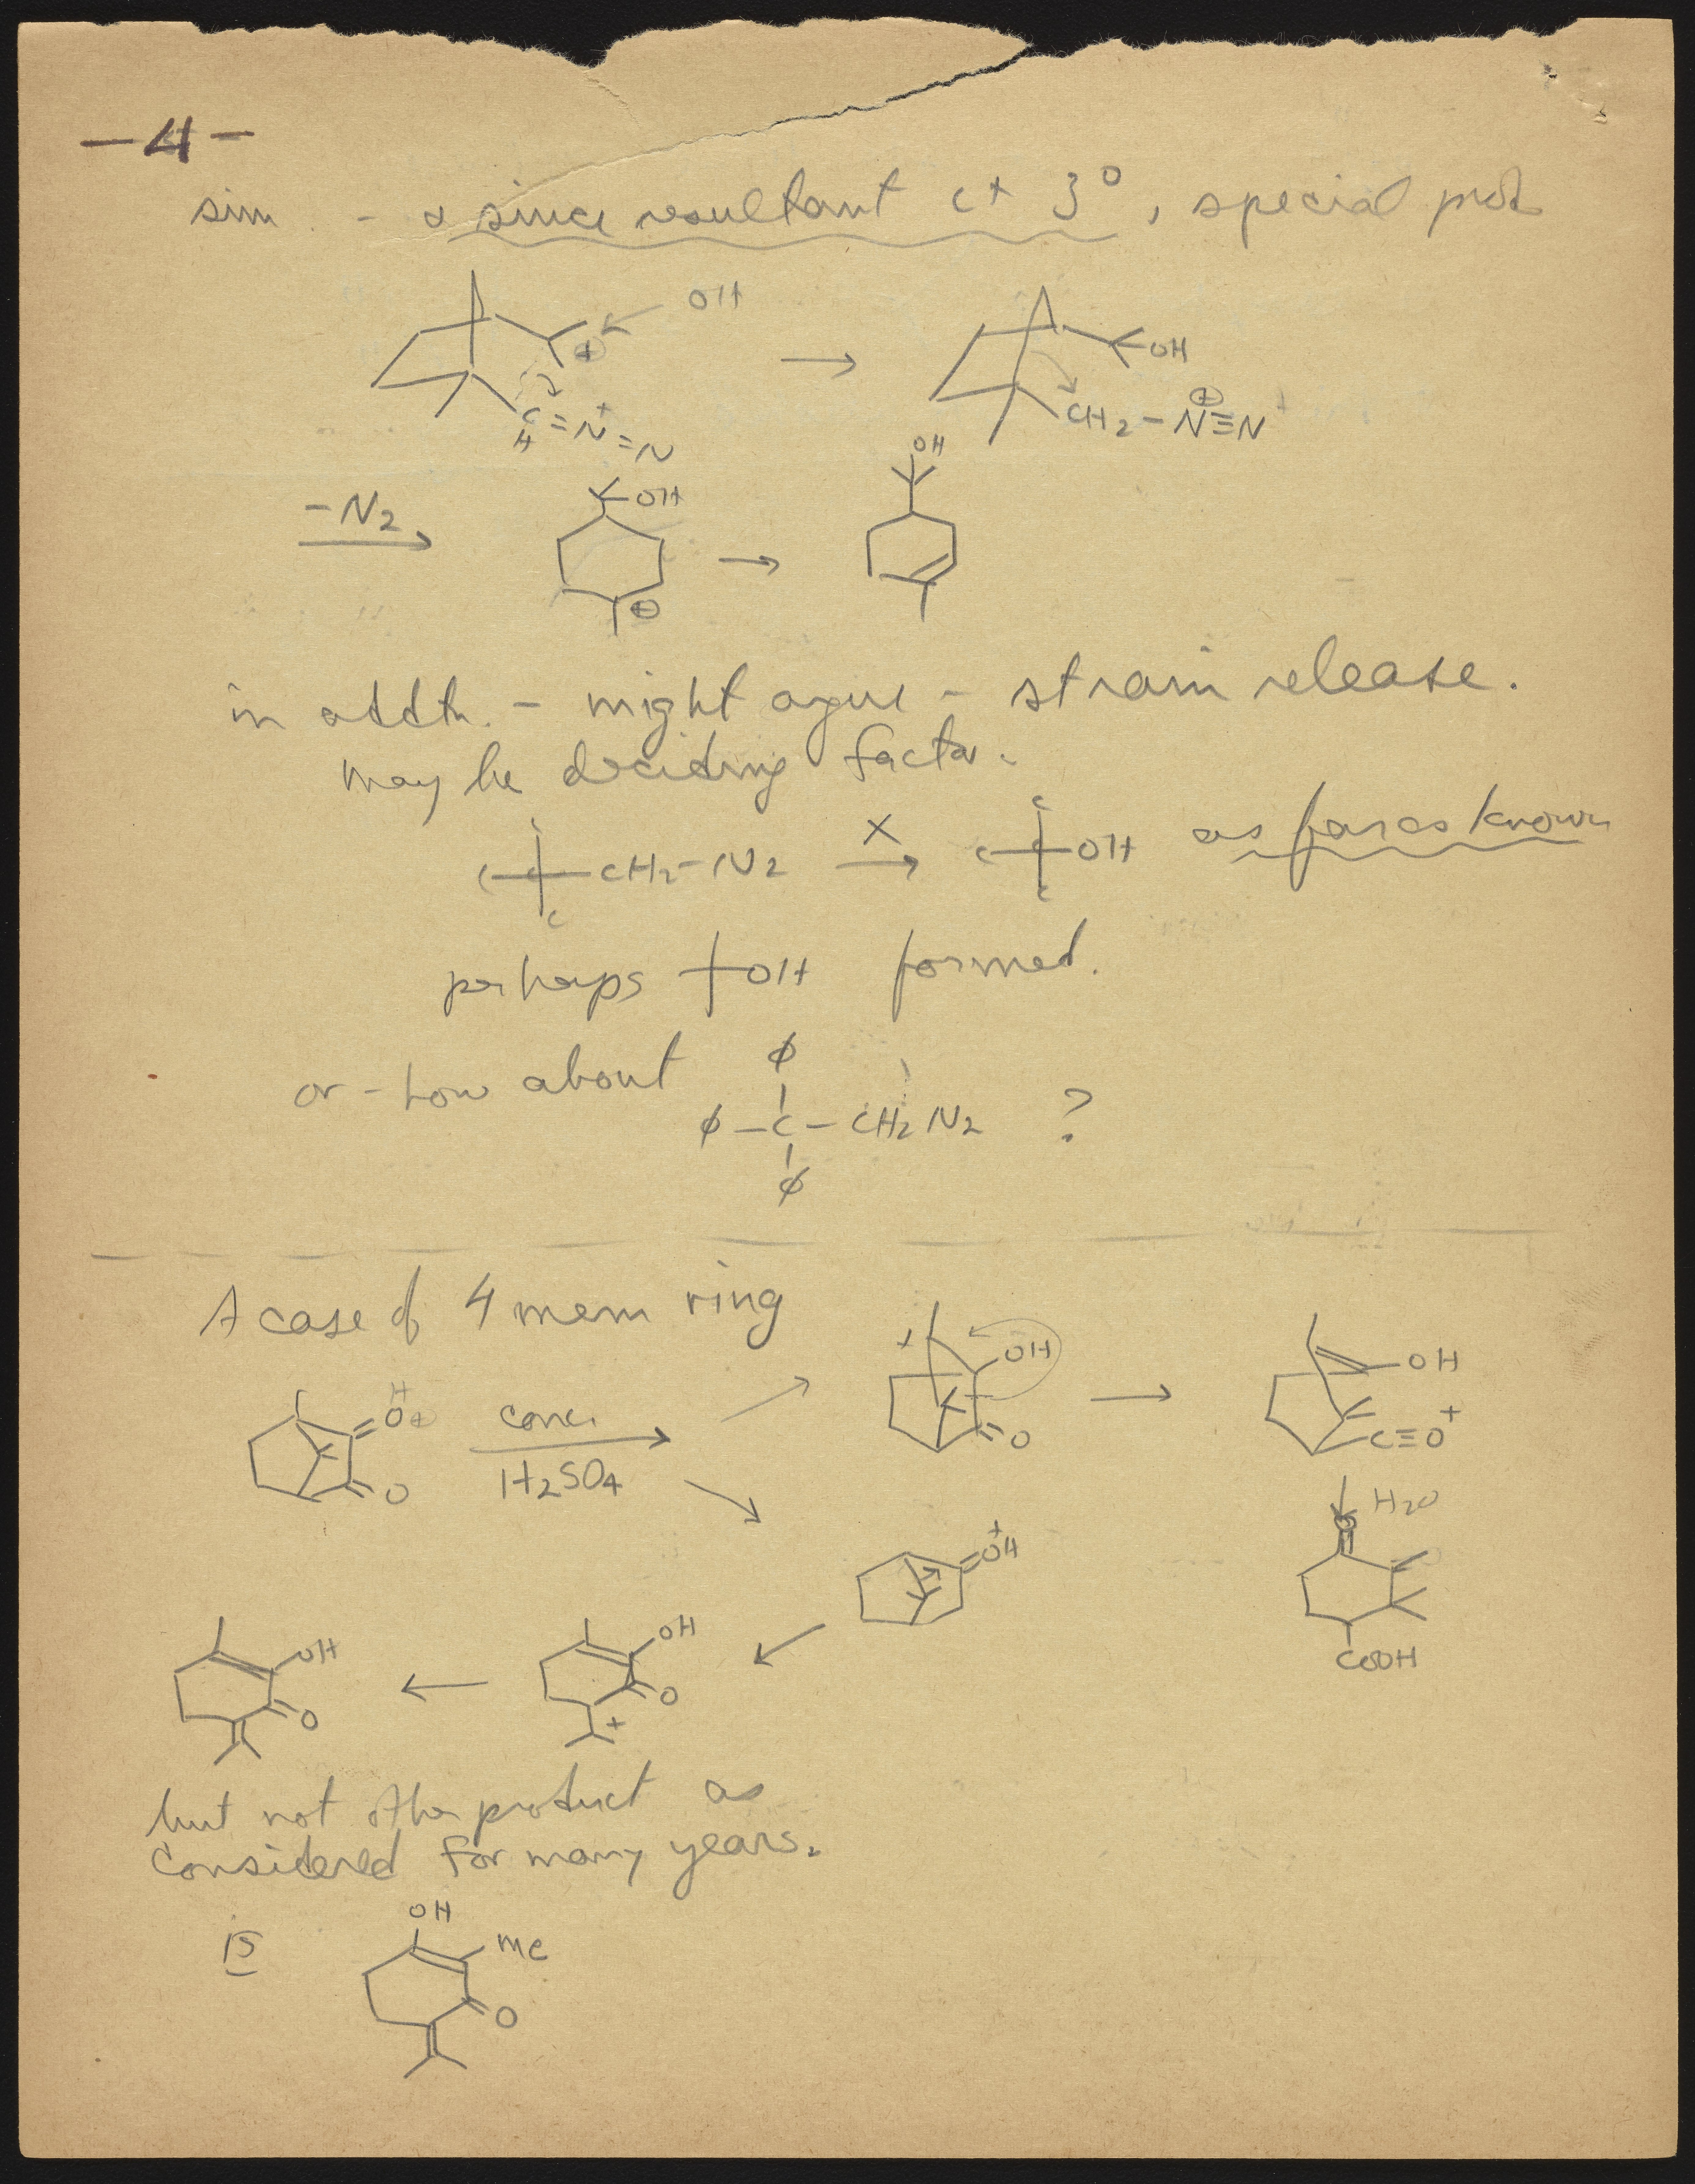 -4-
sim - & since resultant C+ 3°, special prod
OH
+
C = N+ = N
H
→
OH
CH2 - N≡N
+
-N2 →
OH
+
→
OH
in addtn. - might argue - strain release.
may be deciding factor.
C C C C - CH2 - N2 X → C C C OH as far as known
perhaps OH formed.
or - how about
φ
φ - C - CH2 N2 ?
φ
A case of 4 mem ring
H
O+
O
conc.
H2SO4
+ OH
O
→
OH
C≡O+
H2O
COOH
+
OH
OH
O
+
←
OH
O
but not other product as
considered for many years.
is
OH
Me
O